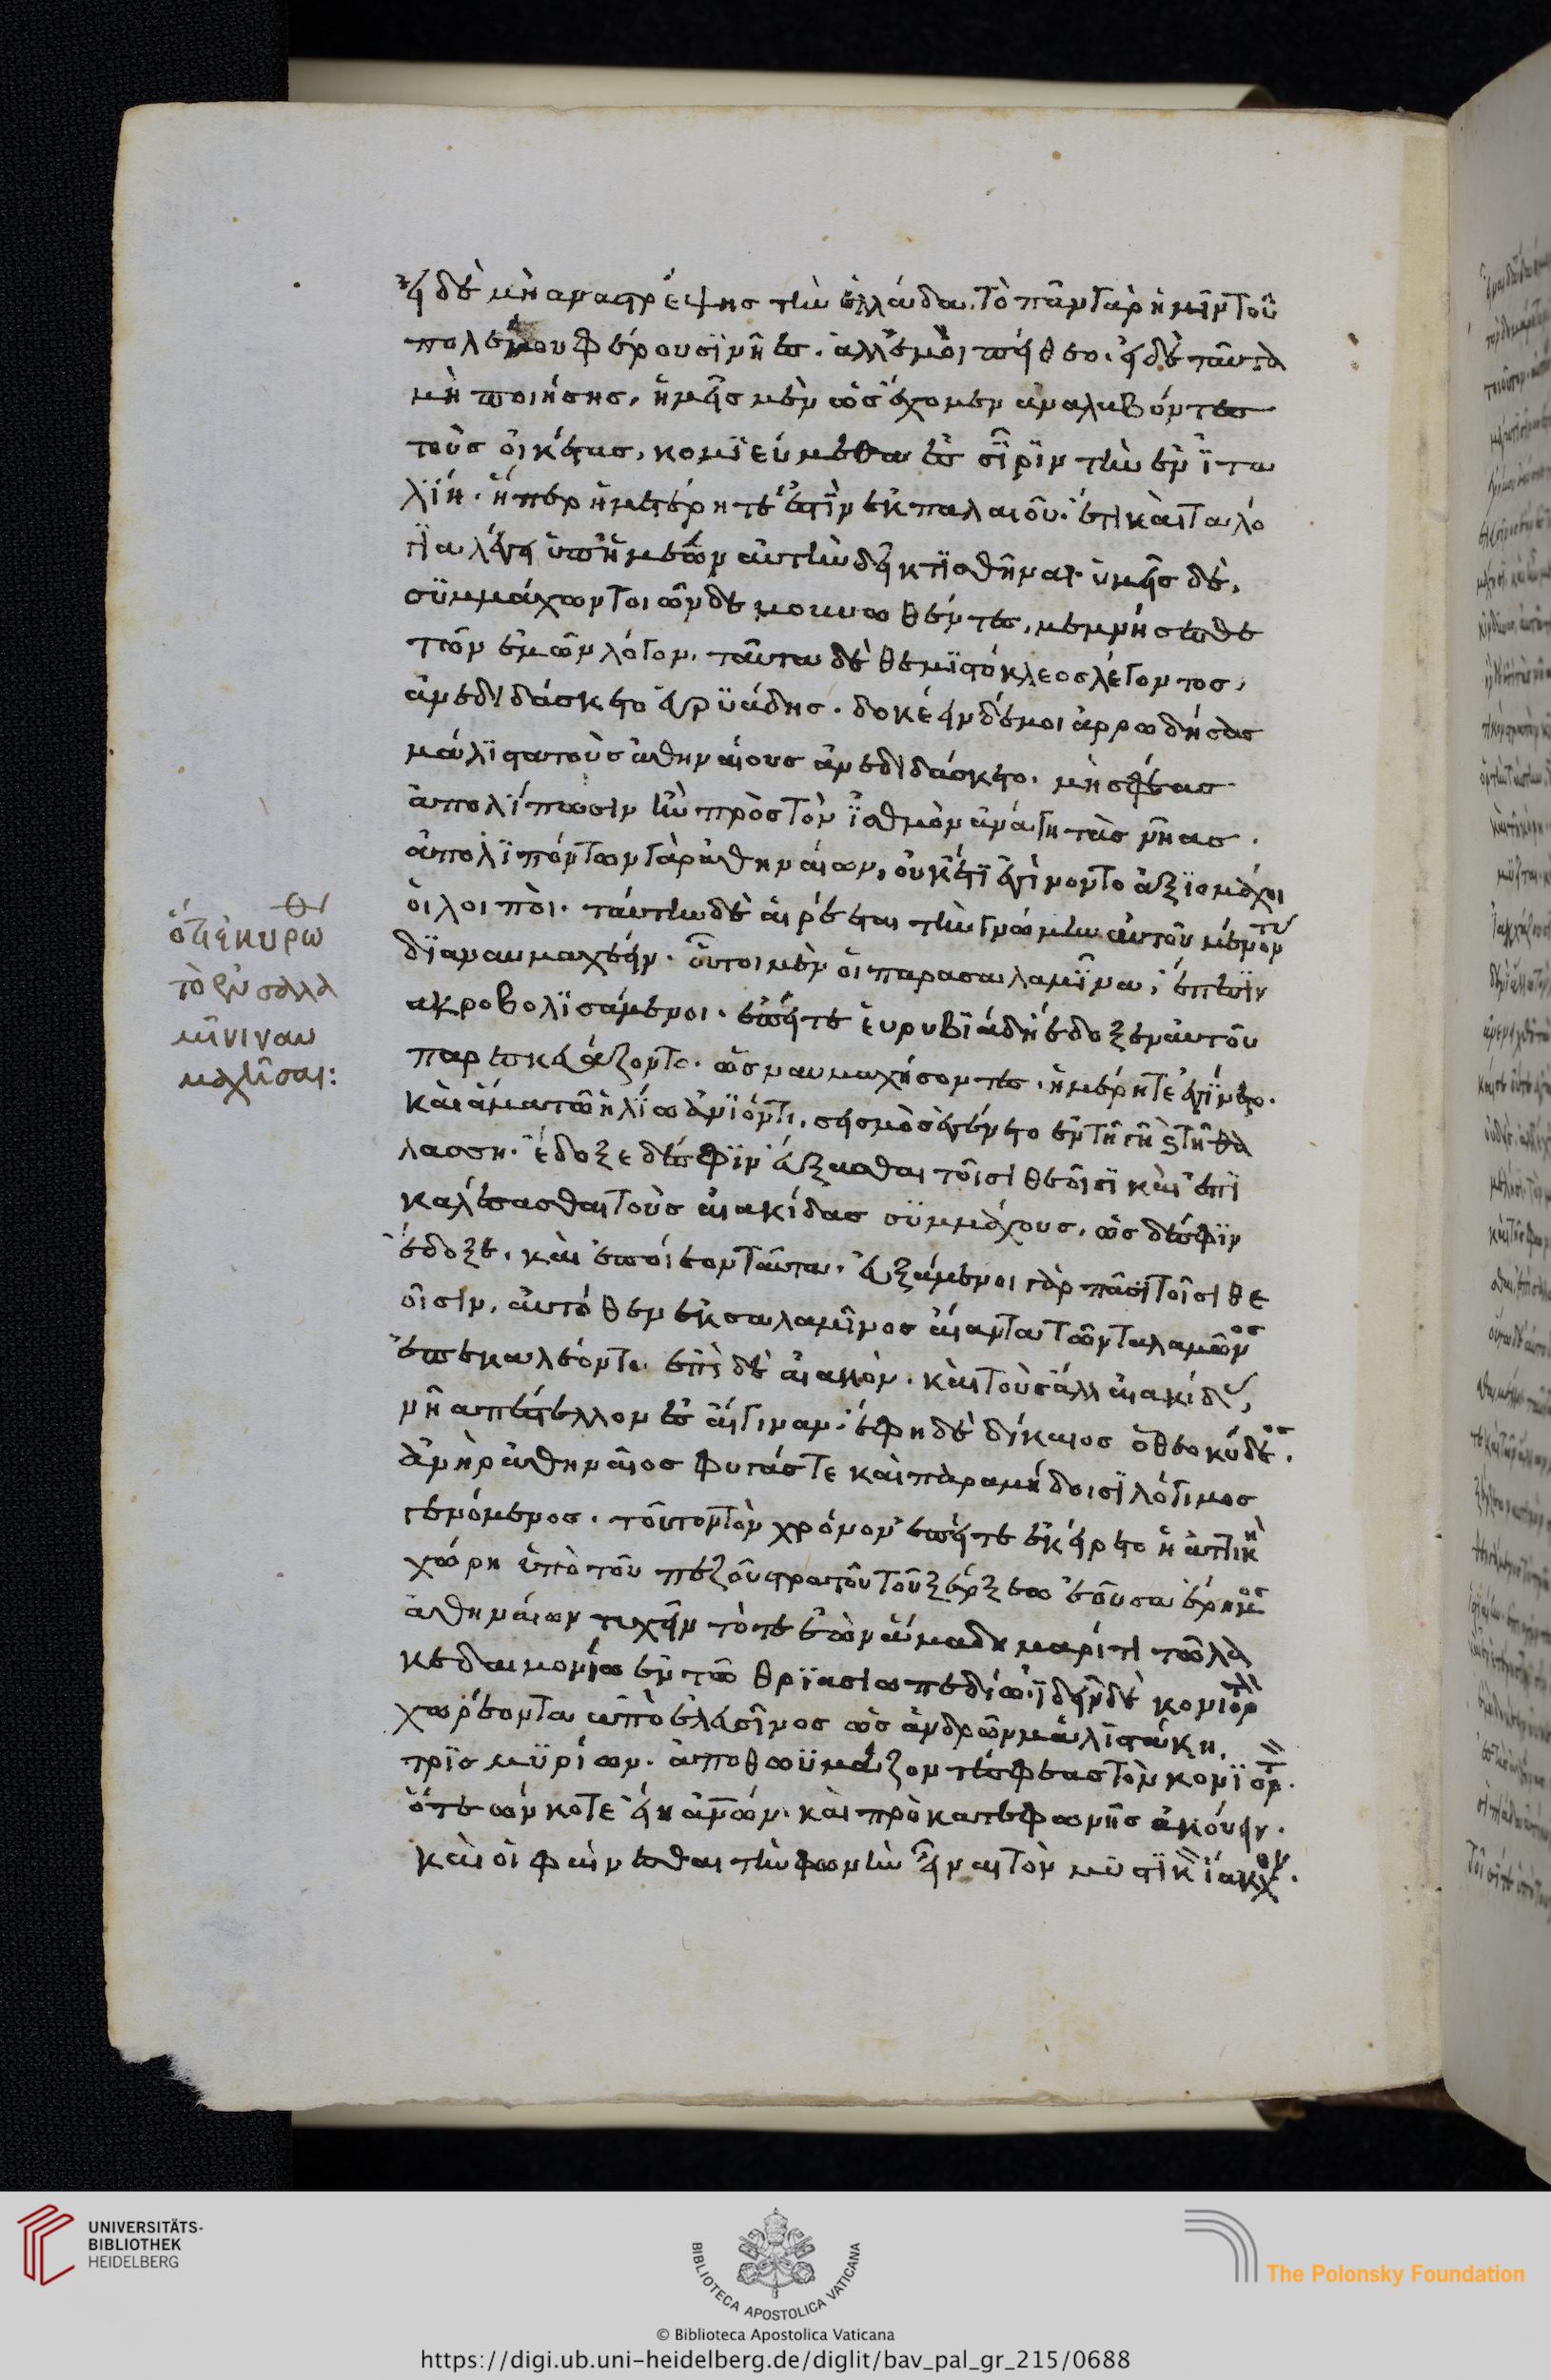 εἰ δὲ μὴ ἀναστρέψης τὴν ἑλλάδα. τὸ πᾶν γὰρ ἡμῖν τοῦ
πολέμου φέρουσι νῆες. ἀλλ' ἐμοὶ πείθεο. εἰ δὲ ταῦτα
μὴ ποιήσης, ἡμεῖς μὲν ὡς ἔχομεν ἀναλαβόντες
τοὺς οἰκέτας, κομιεύμεθα ἐς σῖριν τὴν ἐν ἰτα
λίη. ἥπερ ἡμετέρη τέ ἐστιν ἐκ παλαιοῦ ἔτι καὶ τὰ λό
για λέγει ὑπ' ἡμέων αὐτὴν δεῖ κτισθῆναι. ὑμεῖς δὲ,
συμμάχων τοιῶνδε μουνωθέντες, μεμνήσεσθε
τῶν ἐμῶν λόγων. ταῦτα δὲ θεμιστόκλεος λέγοντος,
ἀνεδιδάσκετο εὐρυάδης. δοκέειν δέ μοι ἀρρωδήσας
μάλιστα τοὺς ἀθηναίους ἀνεδιδάσκετο. μὴ σφέας
ἀπολίπωσιν ἢν πρὸς τὸν ἰσθμὸν ἀνάγη τὰς νῆας.
ἀπολιπόντων γὰρ ἀθηναίων, οὐκέτι ἐγίνοντο ἀξιομάχοι
οἱ λοιποί. ταύτην δὲ αἱρέεται τὴν γνώμην αὐτοῦ μένοντ
διαναυμαχέειν. οὗτοι μὲν οἱ παρὰ σαλαμῖνα, ἔπεσιν
ἀκροβολισάμενοι. ἐπείτε εὐρυβιάδη ἔδοξεν αὐτοῦ
παρεσκευάζοντο. ὡς ναυμαχήσοντες. ἡμέρη τε ἐγίνετο.
καὶ ἅμα τῶ ἡλίω ἀνιόντι, σεισμὸς ἐγένετο ἔν τῆ γῆ ϗ τῆ θα
λάσση. ἔδοξε δέ σφιν εὔξασθαι τοῖσι θεοῖσι καὶ ἐπι
καλέσασθαι τοὺς αἰακίδας συμμάχους. ὡς δέ σφιν
ἔδοξε, καὶ ἐποίεον ταῦτα. εὐξάμενοι γὰρ πᾶσι τοῖσι θε
οῖσιν, αὐτόθεν ἐκ σαλαμῖνος αἴαντα τῶν ταλαμῶνος
ἐπεκαλέοντο. ἐπὶ δὲ αἰακὸν. καὶ τοὺς ἄλλ αἰακίδ,
νῆα ἀπέστελλον ἐς αἴγιναν. ἔφη δὲ δίκαιος ὁ θεοκύδεος.
ἀνὴρ ἀθηναῖος φυγάς τε καὶ παρὰ μήδοισι λόγιμος
γενόμενος. τοῦτον τὸν χρόνον ἐπείτε ἐκείρετο ἡ ἀττικὴ
χώρη ὑπὸ τοῦ πεζοῦ στρατοῦ τοῦ ξέρξεω ἐοῦσα ἐρῆμος
ἀθηναίων τυχεῖν τότε ἐὼν ἅμα δημαρίτι τῶ λα
κεδαιμονίω ἐν τῶ θριασίω πεδίω. ἰδεῖν δὲ κονιορτὸν
χωρέοντα ἀπὸ ἐλευσῖνος ὡς ἀνδρῶν μάλιστά κη,
τρὶς μυρίων. ἀποθωυμάζον τέ σφεας τὸν κονιορτ.
ὅτεων κοτε εἴη ἀνων. καὶ πρόκατε φωνῆς ἀκούειν.
καί οἱ φαίνεσθαι τὴν φωνὴν εἶναι τὸν μυστικ ἴακχον.
ὅτι ἐκυρώ
θ
το ἐν σαλα
μῖνι ναυ
μαχῆσαι:
UNIVERSITÄTS-
BIBLIOTHEK
HEIDELBERG
BIBLIOTECA APOSTOLICA VATICANA
The Polonsky Foundation
© Biblioteca Apostolica Vaticana
https://digi.ub.uni-heidelberg.de/diglit/bav_pal_gr_215/0688